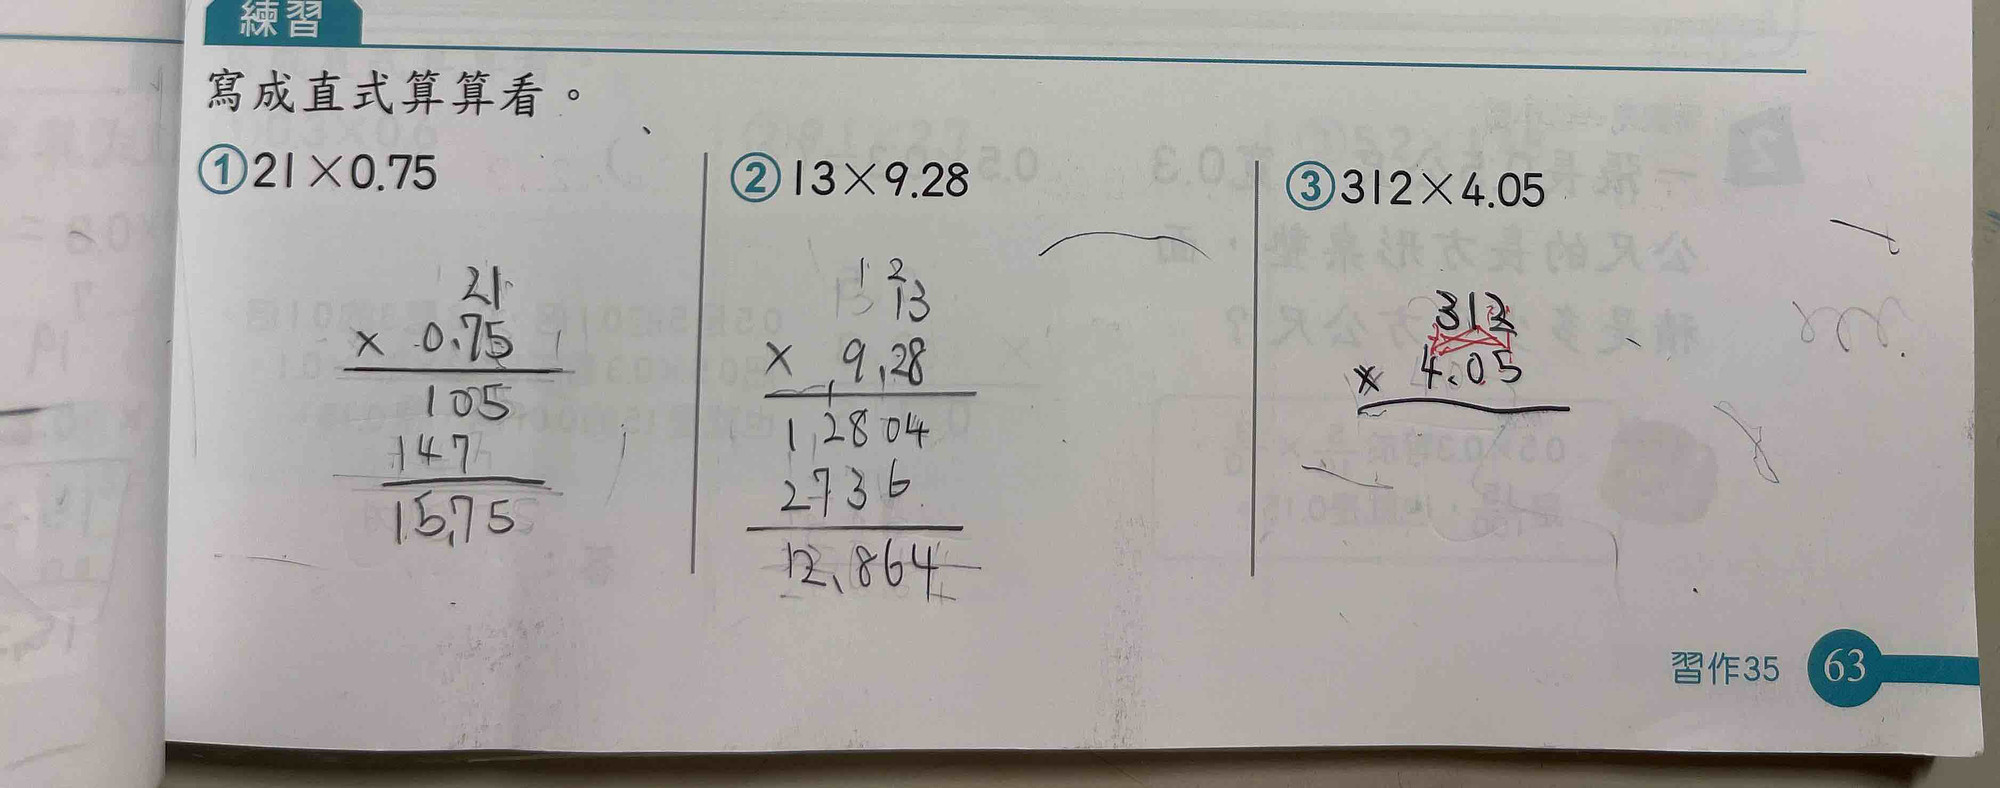 練習
寫成直式算算看。
①21×0.75
21
× 0.75
105
147
15.75
②13×9.28
1 2
13
× 9.28
12804
2736
12.864
③312×4.05
312
× 4.05
習作35 63